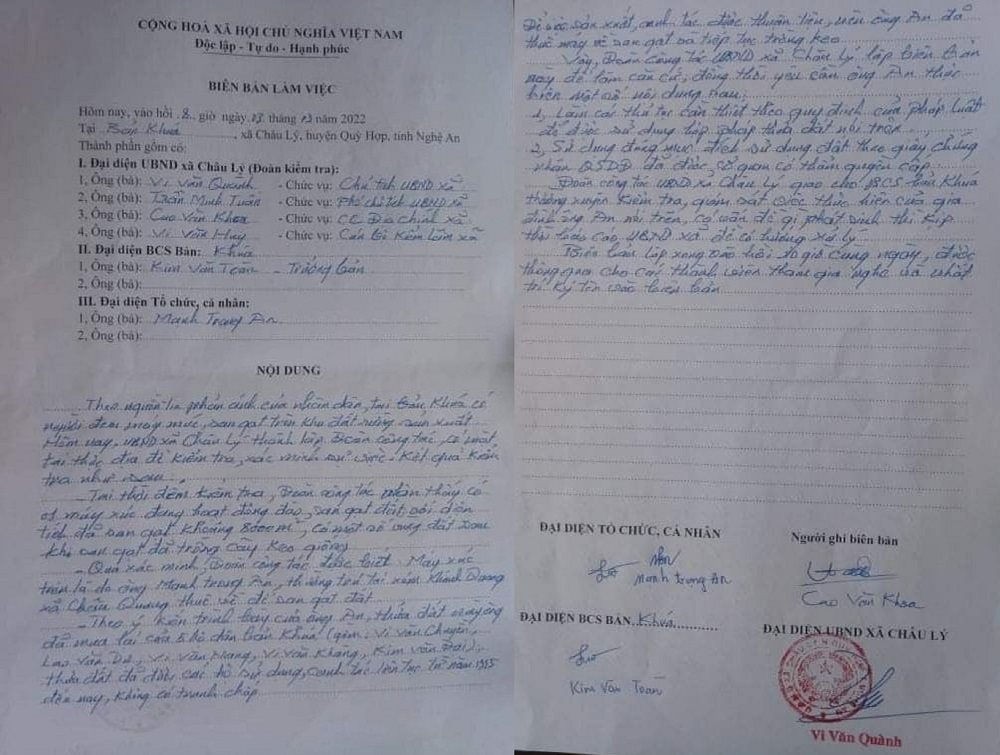 CỘNG HOÀ XÃ HỘI CHỦ NGHĨA VIỆT NAM
Độc lập - Tự do - Hạnh phúc
BIÊN BẢN LÀM VIỆC
Hôm nay, vào hồi 8 giờ ngày 13 tháng 3 năm 2022
Tại Bản Khuá, xã Châu Lý, huyện Quỳ Hợp, tỉnh Nghệ An
Thành phần gồm có:
I. Đại diện UBND xã Châu Lý (Đoàn kiểm tra):
1, Ông (bà): Vi Văn Quành - Chức vụ: Chủ tịch UBND xã
2, Ông (bà): Trần Minh Tuấn - Chức vụ: Phó chủ tịch UBND xã
3, Ông (bà): Cao Văn Khoa - Chức vụ: CC Địa chính xã
4, Ông (bà): Vi Văn Huy - Chức vụ: Cán bộ Kiểm lâm xã
II. Đại diện BCS Bản: Khuá
1, Ông (bà): Kim Văn Toan - Trưởng bản
2, Ông (bà):
III. Đại diện Tổ chức, cá nhân:
1, Ông (bà): Manh Trọng An
2, Ông (bà):
NỘI DUNG
Theo nguồn tin phản ánh của nhân dân, tại bản Khuá có
người đem máy múc, san gạt trên khu đất rừng sản xuất
Hôm nay, UBND xã Châu Lý thành lập Đoàn công tác, có mặt
tại thực địa để kiểm tra, xác minh sự việc. Kết quả kiểm
tra như sau:
- Tại thời điểm kiểm tra, Đoàn công tác nhận thấy có
01 máy xúc đang hoạt động đào, san gạt đất, với diện
tích đã san gạt khoảng 8000m², có một số vùng đất sau
khi san gạt đã trồng cây keo giống
- Qua xác minh, Đoàn công tác được biết: Máy xúc
trên là do ông Manh Trọng An, thường trú tại xóm
xã Châu Quang thuê về để san gạt đất.
- Theo ý kiến trình bày của ông An, thửa đất này ông
đã mua lại của 5 hộ dân bản Khuá (gồm: Vi Văn Chuyền,
Lao Văn Vi Văn Vi Văn Khăng, Kim Văn
thửa đất đã được các hộ sử dụng, canh tác liên tục từ năm 1995
đến nay, không có tranh chấp.
Để việc sản xuất, canh tác được thuận tiện, nên ông An đã
thuê máy về san gạt và tiếp tục trồng keo
Vậy, Đoàn công tác UBND xã Châu Lý lập biên bản
này để làm căn cứ, đồng thời yêu cầu ông An thực
hiện một số nội dung sau:
1, Làm các thủ tục cần thiết theo quy định của pháp luật
để được sử dụng hợp pháp thửa đất nói trên
2, Sử dụng đúng mục đích sử dụng đất theo giấy chứng
nhận QSDĐ đã được cơ quan có thẩm quyền cấp
Đoàn công tác UBND xã Châu Lý giao cho BCS bản Khuá
thường xuyên kiểm tra, giám sát việc thực hiện của gia
đình ông An nói trên, có vấn đề gì phát sinh thì kịp
thời báo cáo UBND xã để có hướng xử lý
Biên bản lập xong vào hồi 10 giờ cùng ngày, được
thông qua cho các thành viên tham gia nghe và nhất
trí ký tên vào biên bản
ĐẠI DIỆN TỔ CHỨC, CÁ NHÂN
Manh Trọng An
Người ghi biên bản
Cao Văn Khoa
ĐẠI DIỆN BCS BẢN Khuá
Kim Văn Toan
ĐẠI DIỆN UBND XÃ CHÂU LÝ
Vi Văn Quành